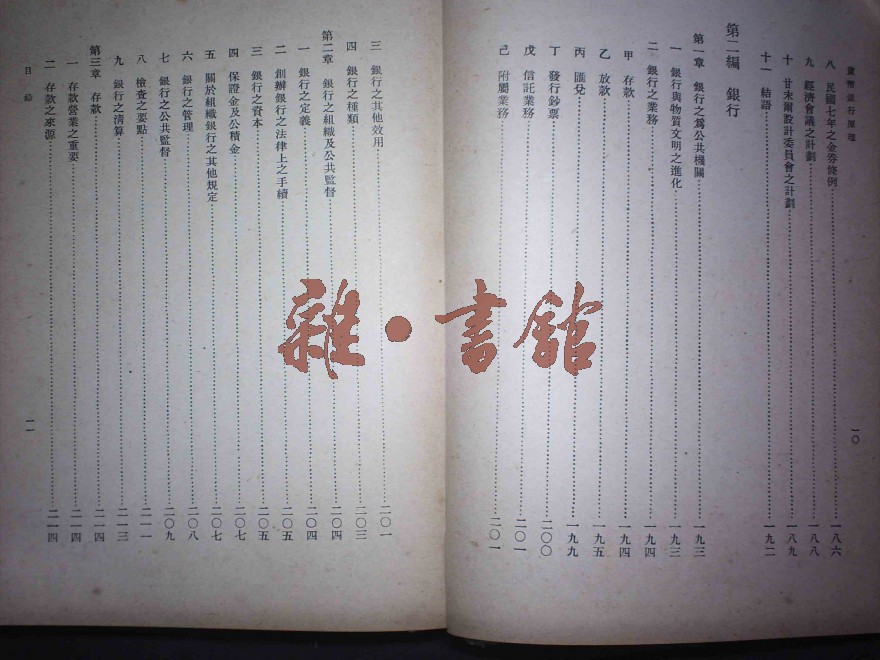 貨幣銀行原理
八 民國七年之金券條例……一八六
九 經濟會議之計劃……一八八
十 甘末爾設計委員會之計劃……一八九
十一 結語……一九二
第二編 銀行
第一章 銀行之爲公共機關……一九三
一 銀行與物質文明之進化……一九三
二 銀行之業務……一九四
甲 存款……一九四
乙 放款……一九五
丙 匯兌……一九九
丁 發行鈔票……二〇〇
戊 信託業務……二〇一
己 附屬業務……二〇一
一〇
三 銀行之其他效用……二〇一
四 銀行之種類……二〇三
第二章 銀行之組織及公共監督……二〇四
一 銀行之定義……二〇四
二 創辦銀行之法律上之手續……二〇五
三 銀行之資本……二〇五
四 保證金及公積金……二〇七
五 關於組織銀行之其他規定……二〇七
六 銀行之管理……二〇八
七 銀行之公共監督……二〇九
八 檢查之要點……二一一
九 銀行之清算……二一三
第三章 存款……二一四
一 存款營業之重要……二一四
二 存款之來源……二一四
目錄
一一
雜·書館